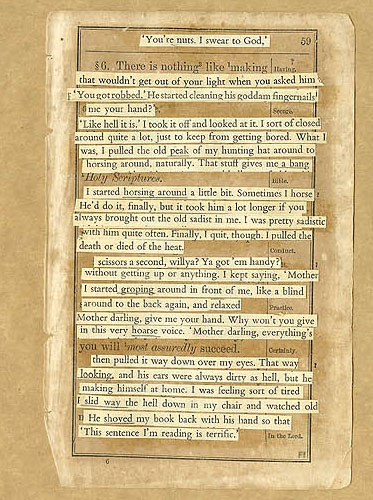 'You're nuts. I swear to God,'
59
§6. There is nothing like 'making
that wouldn't get out of your light when you asked him
'You got robbed.' He started cleaning his goddam fingernails
me your hand?'
'Like hell it is.' I took it off and looked at it. I sort of closed
around quite a lot, just to keep from getting bored. What I
was, I pulled the old peak of my hunting hat around to
horsing around, naturally. That stuff gives me a bang
Holy Scriptures.
Bible.
I started horsing around a little bit. Sometimes I horse
He'd do it, finally, but it took him a lot longer if you
always brought out the old sadist in me. I was pretty sadistic
with him quite often. Finally, I quit, though. I pulled the
death or died of the heat.
Conduct.
scissors a second, willya? Ya got 'em handy?
without getting up or anything. I kept saying, 'Mother
I started groping around in front of me, like a blind
around to the back again, and relaxed
Practice.
Mother darling, give me your hand. Why won't you give
in this very hoarse voice. 'Mother darling, everything's
you will most assuredly succeed.
Certainly.
then pulled it way down over my eyes. That way
looking, and his ears were always dirty as hell, but he
making himself at home. I was feeling sort of tired
I slid way the hell down in my chair and watched old
He shoved my book back with his hand so that
'This sentence I'm reading is terrific.'
In the Lord.
6